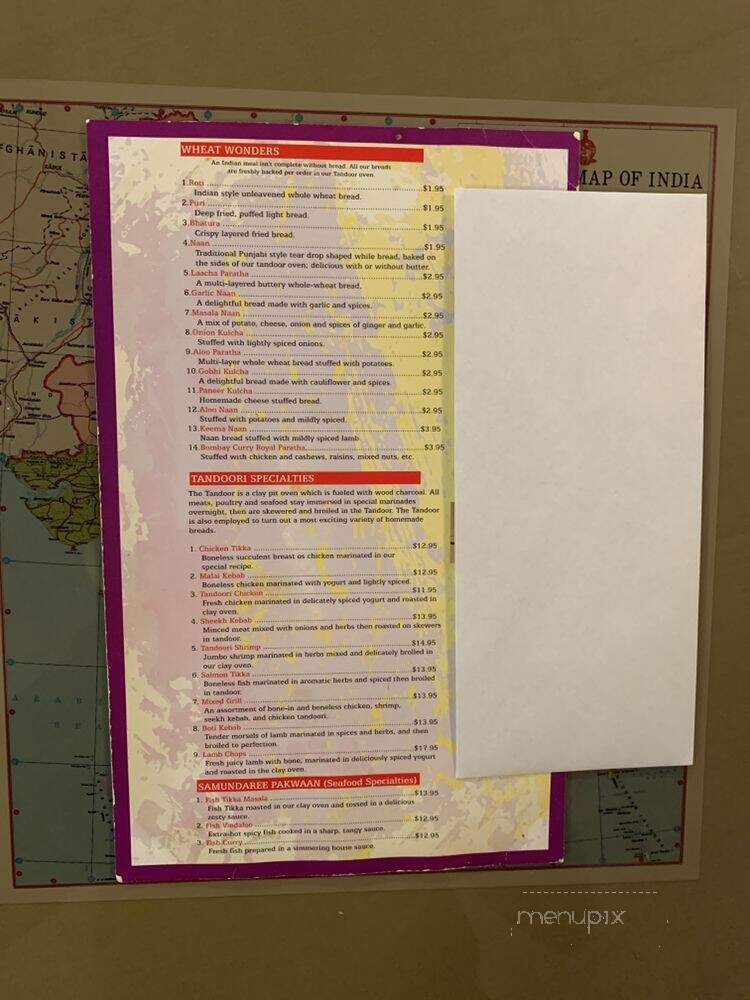 FGHĀNISTĀ
KĀBUL
MAP OF INDIA
WHEAT WONDERS
An Indian meal isn't complete without bread. All our breads
are freshly backed per order in our Tandoor oven.
1.Roti ........$1.95
Indian style unleavened whole wheat bread.
2.Puri ........$1.95
Deep fried, puffed light bread.
3.Bhatura ........$1.95
Crispy layered fried bread.
4.Naan ........$1.95
Traditional Punjabi style tear drop shaped while bread, baked on
the sides of our tandoor oven; delicious with or without butter.
5.Laacha Paratha ........$2.95
A multi-layered buttery whole-wheat bread.
6.Garlic Naan ........$2.95
A delightful bread made with garlic and spices.
7.Masala Naan ........$2.95
A mix of potato, cheese, onion and spices of ginger and garlic.
8.Onion Kulcha ........$2.95
Stuffed with lightly spiced onions.
9.Aloo Paratha ........$2.95
Multi-layer whole wheat bread stuffed with potatoes.
10.Gobhi Kulcha ........$2.95
A delightful bread made with cauliflower and spices.
11.Paneer Kulcha ........$2.95
Homemade cheese stuffed bread.
12.Aloo Naan ........$2.95
Stuffed with potatoes and mildly spiced.
13.Keema Naan ........$3.95
Naan bread stuffed with mildly spiced lamb.
14.Bombay Curry Royal Paratha ........$3.95
Stuffed with chicken and cashews, raisins, mixed nuts, etc.
TANDOORI SPECIALTIES
The Tandoor is a clay pit oven which is fueled with wood charcoal. All
meats, poultry and seafood stay immersed in special marinades
overnight, then are skewered and broiled in the Tandoor. The Tandoor
is also employed to turn out a most exciting variety of homemade
breads.
1. Chicken Tikka ........$12.95
Boneless succulent breast os chicken marinated in our
special recipe.
2. Malai Kebab ........$12.95
Boneless chicken marinated with yogurt and lightly spiced.
3. Tandoori Chicken ........$11.95
Fresh chicken marinated in delicately spiced yogurt and roasted in
clay oven.
4. Sheekh Kebab ........$13.95
Minced meat mixed with onions and herbs then roasted on skewers
in tandoor.
5. Tandoori Shrimp ........$14.95
Jumbo shrimp marinated in herbs mixed and delicately broiled in
our clay oven.
6. Salmon Tikka ........$13.95
Boneless fish marinated in aromatic herbs and spiced then broiled
in tandoor.
7. Mixed Grill ........$13.95
An assortment of bone-in and boneless chicken, shrimp,
seekh kebab, and chicken tandoori.
8. Boti Kebab ........$13.95
Tender morsels of lamb marinated in spices and herbs, and then
broiled to perfection.
9. Lamb Chops ........$17.95
Fresh juicy lamb with bone, marinated in deliciously spiced yogurt
and roasted in the clay oven.
SAMUNDAREE PAKWAAN (Seafood Specialties)
1. Fish Tikka Masala ........$13.95
Fish Tikka roasted in our clay oven and tossed in a delicious
zesty sauce.
2. Fish Vindaloo ........$12.95
Extra-hot spicy fish cooked in a sharp, tangy sauce.
3. Fish Curry ........$12.95
Fresh fish prepared in a simmering house sauce.
menupix